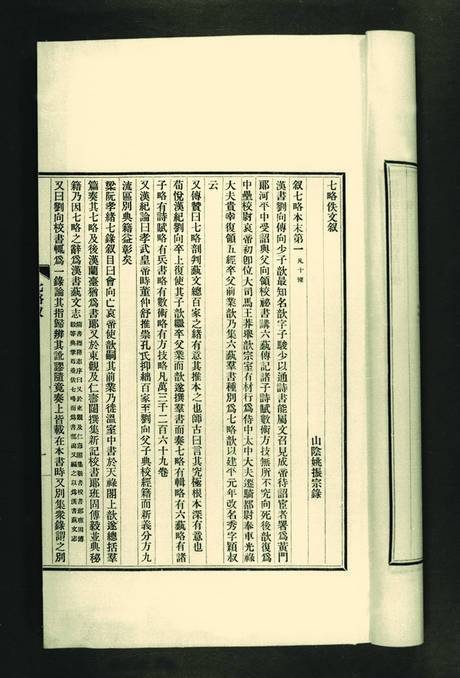 七略佚文叙
山陰姚振宗錄
叙七略本末第一 凡十條
漢書劉向傳向少子歆最知名歆字子駿少以通詩書能屬文召見成帝待詔宦者署爲黃門
郎河平中受詔與父向領校祕書講六蓺傳記諸子詩賦數術方技無所不究向死後歆復爲
中壘校尉哀帝初卽位大司馬王莽舉歆宗室有材行爲侍中太中大夫遷騎都尉奉車光祿
大夫貴幸復領五經卒父前業歆乃集六蓺羣書種別爲七略歆以建平元年改名秀字穎叔
云
又傳贊曰七略剖判蓺文總百家之緒有意其推本之也師古曰言其究極根本深有意也
荀悅漢紀劉向卒上復使其子歆繼卒父業而歆遂撰羣書而奏七略有輯略有六蓺略有諸
子略有詩賦略有兵書略有數術略有方技略凡萬三千二百六十九卷
又漢紀論曰孝武皇帝時董仲舒推崇孔氏抑絀百家至劉向父子典校經籍而新義分方九
流區別典籍益彰矣
梁阮孝緒七錄叙目曰會向亡哀帝使歆嗣其前業乃徙溫室中書於天祿閣上歆遂總括羣
篇奏其七略及後漢蘭臺猶爲書部又於東觀及仁壽闥撰集新記校書郎班固傅毅並典秘
籍乃因七略之辭爲漢書蓺文志
又曰劉向校書輒爲一錄論其指歸辨其訛謬隨竟奏上皆載在本書時又別集衆錄謂之別